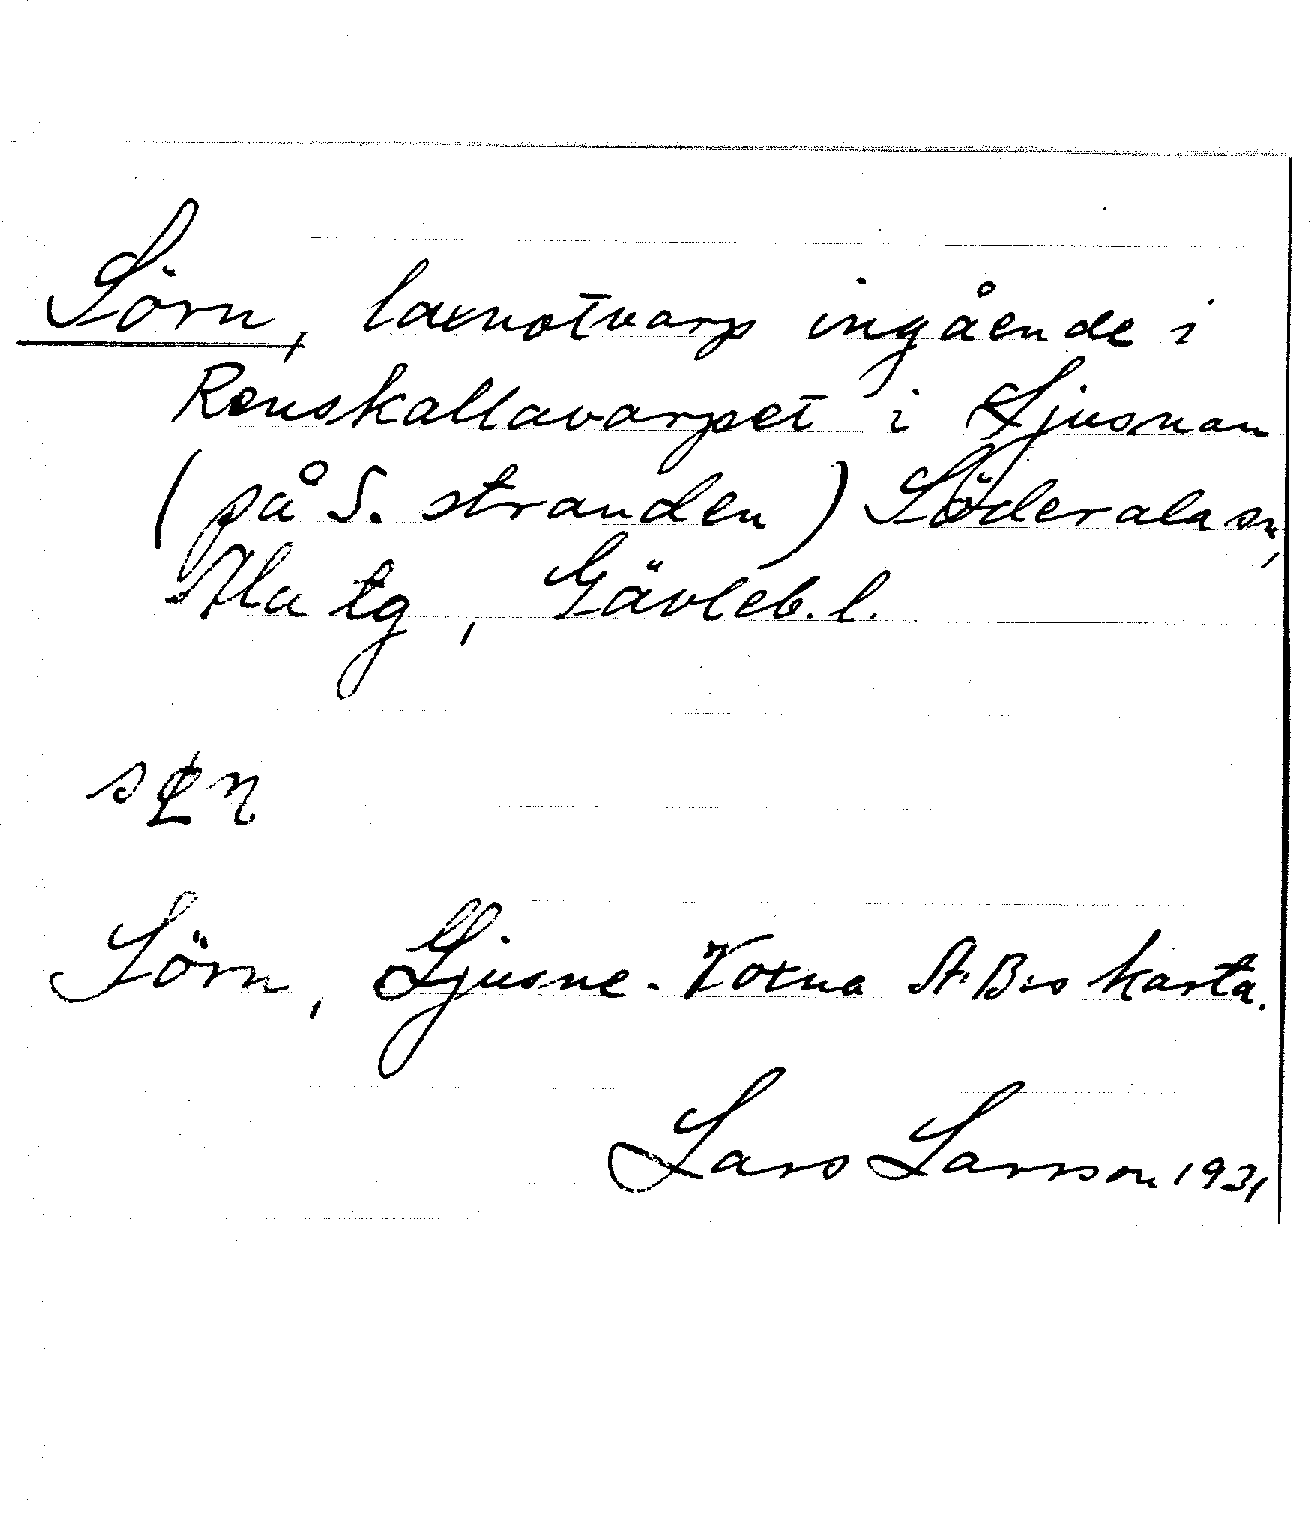 Sörn, laxnotvarp ingående i
Renskallavarpet i Ljusnan
(på S. stranden) Söderala sn,
Ala tg, Gävleb. l.
Sörn, Ljusne-Voxna A.B:s karta.
Lars Larsson 1931